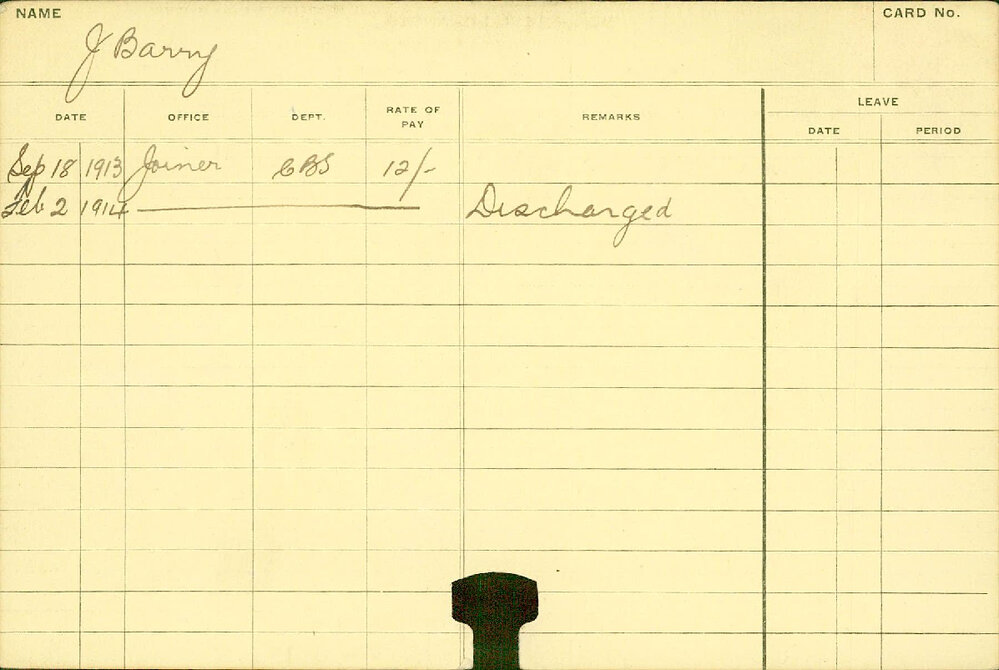 NAME CARD No.
J Barry
DATE OFFICE DEPT. RATE OF PAY REMARKS LEAVE
DATE PERIOD
Sep 18 1913 Joiner CBS 12/-
Feb 2 1914 Discharged